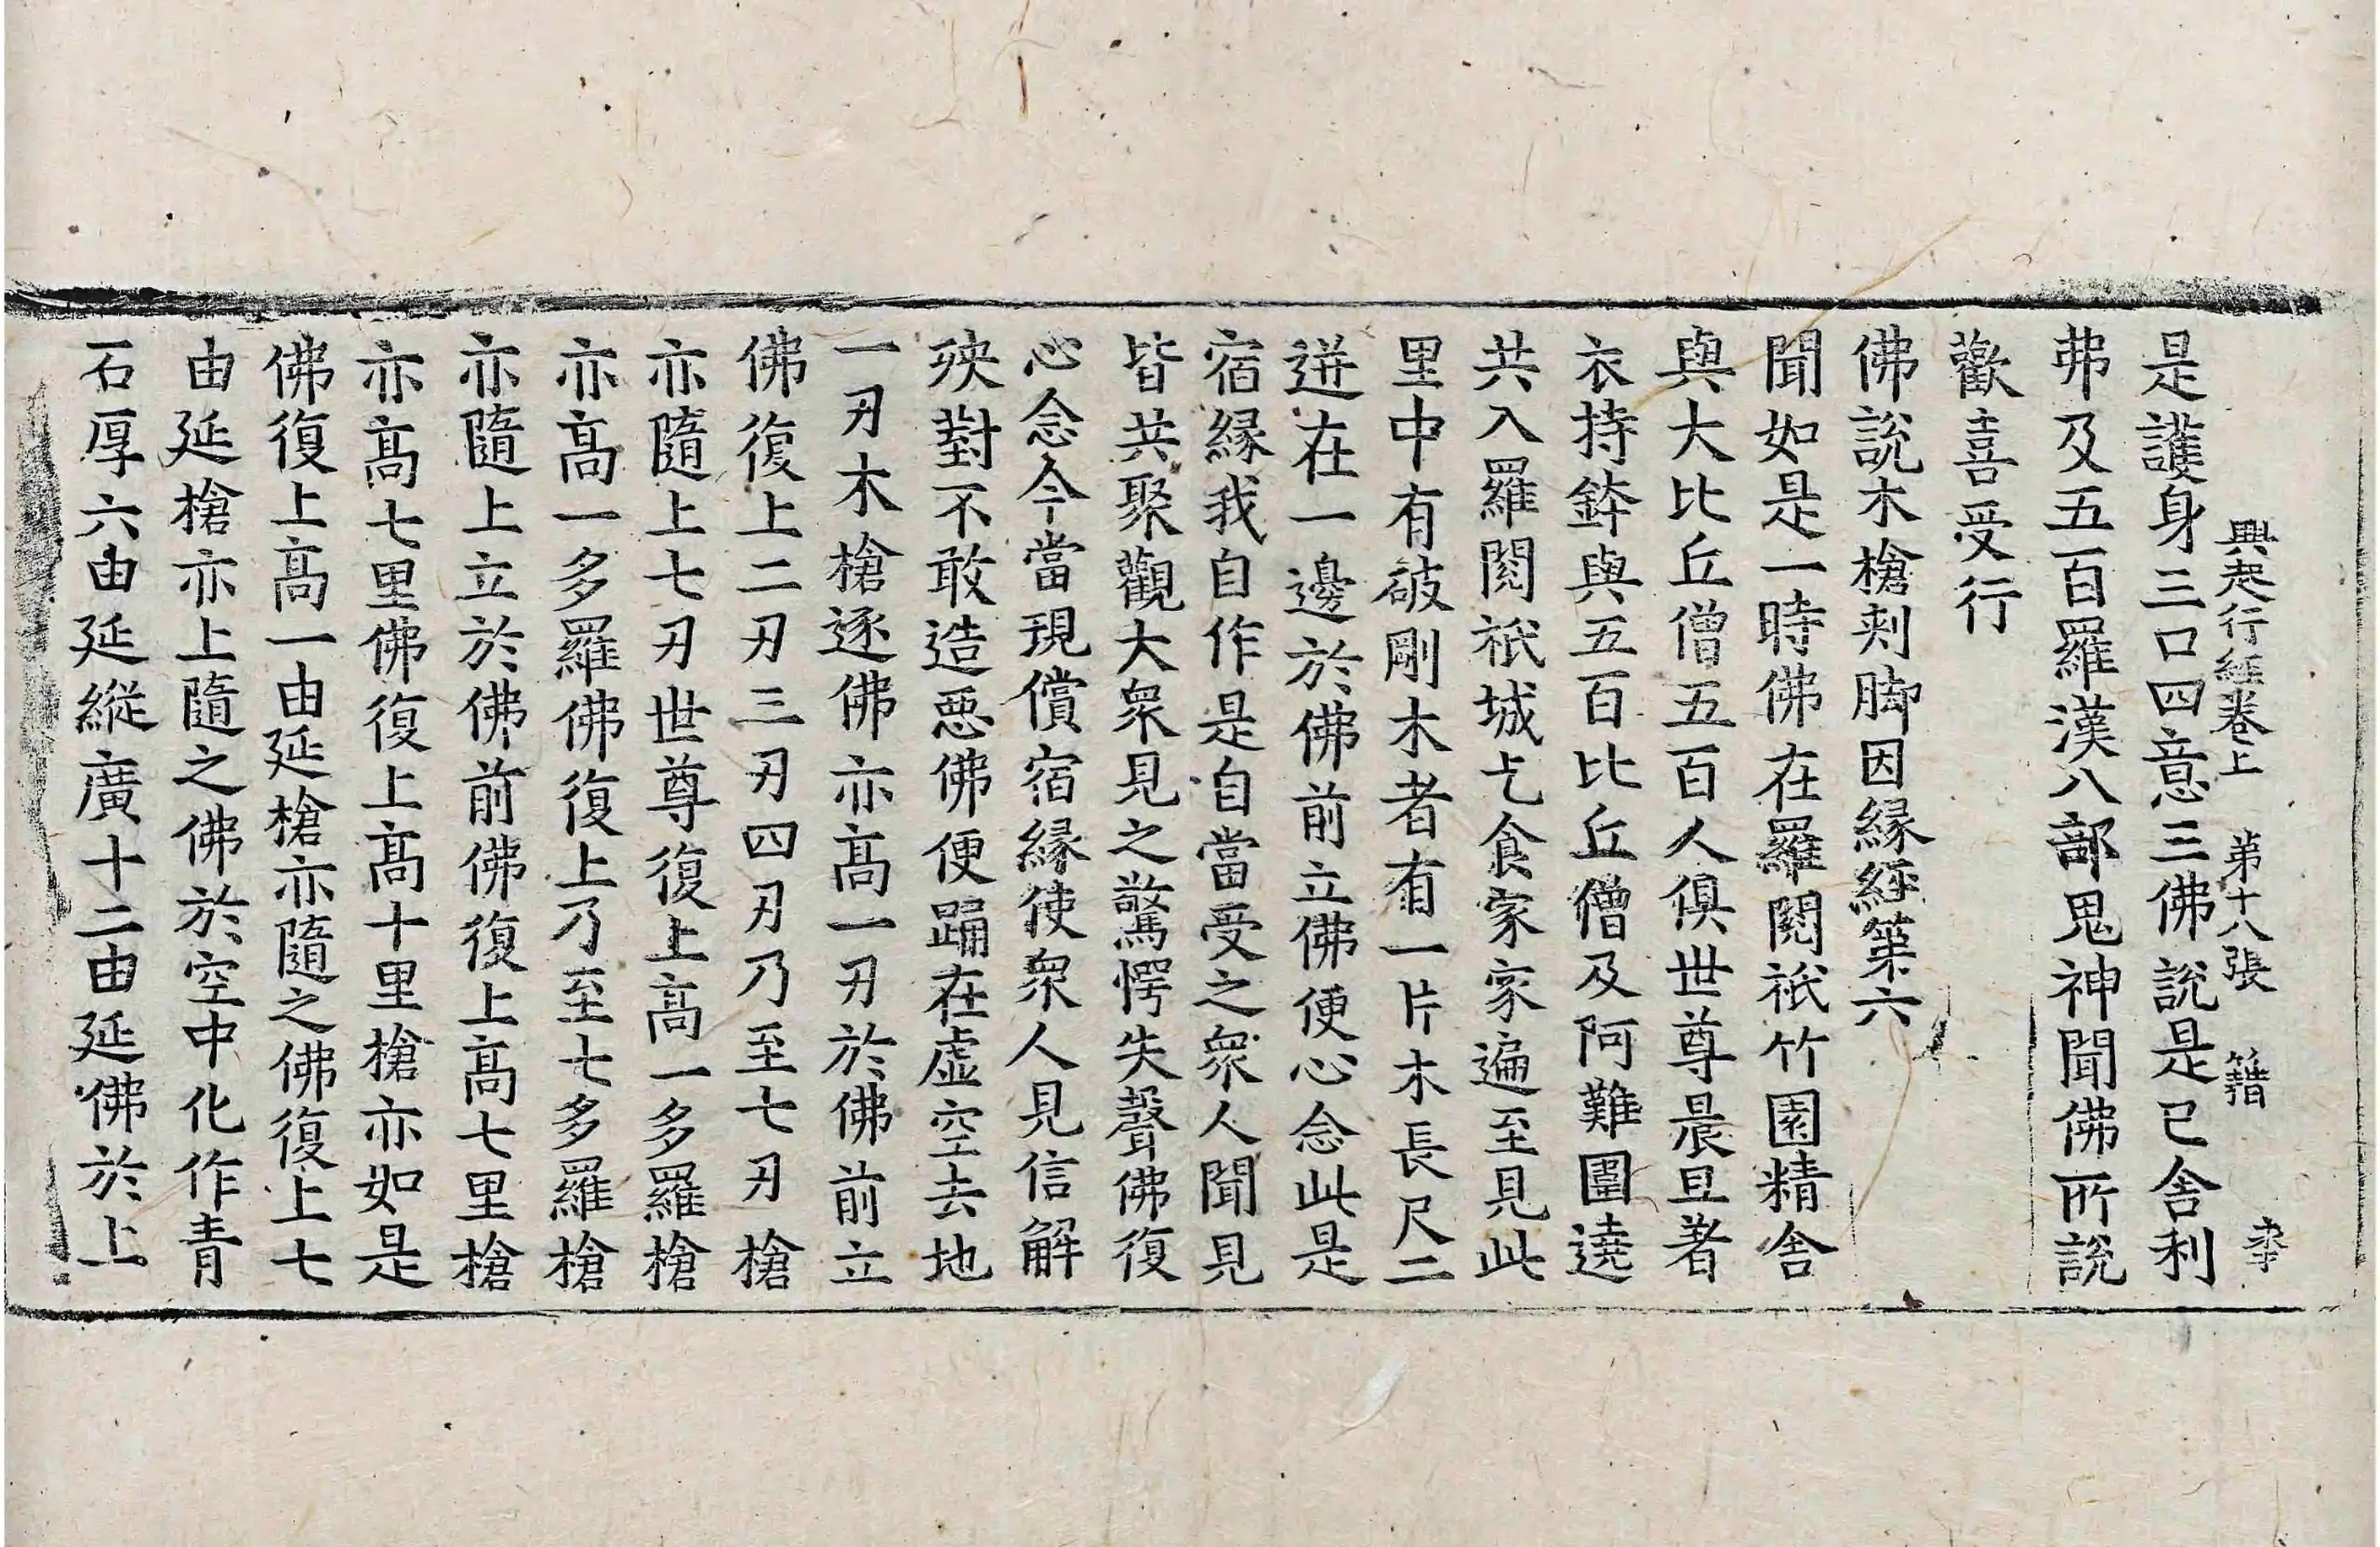 興起行經卷上 第十八張 籍
是護身三口四意三佛說是已舍利
弗及五百羅漢八部鬼神聞佛所說
歡喜受行
佛說木槍刾脚因緣經第六
聞如是一時佛在羅閱祇竹園精舍
與大比丘僧五百人俱世尊晨旦著
衣持鉢與五百比丘僧及阿難圍遶
共入羅閱祇城乞食家家遍至見此
里中有破剛木者有一片木長尺二
迸在一邊於佛前立佛便心念此是
宿緣我自作是自當受之衆人聞見
皆共聚觀大衆見之驚愕失聲佛復
心念今當現償宿緣使衆人見信解
殃對不敢造惡佛便踊在虛空去地
一刃木槍逐佛亦高一刃於佛前立
佛復上二刃三刃四刃乃至七刃槍
亦隨上七刃世尊復上高一多羅槍
亦高一多羅佛復上乃至七多羅槍
亦隨上立於佛前佛復上高七里槍
亦高七里佛復上高十里槍亦如是
佛復上高一由延槍亦隨之佛復上七
由延槍亦上隨之佛於空中化作青
石厚六由延縱廣十二由延佛於上